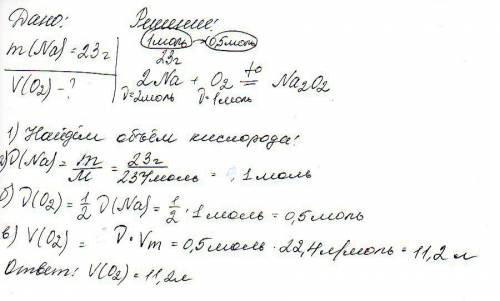 Дано: Решение:
1моль → 0,5моль
m(Na)=23г 23г
V(O₂)-? 2Na + O₂ t° = Na₂O₂
ν=2моль ν=1моль
1) Найдём объём кислорода:
а) ν(Na)= m/M = 23г/23г/моль = 1моль
б) ν(O₂)= 1/2 ν(Na)= 1/2 · 1моль = 0,5моль
в) V(O₂) = ν·Vm = 0,5моль · 22,4л/моль = 11,2 л
Ответ: V(O₂)=11,2л